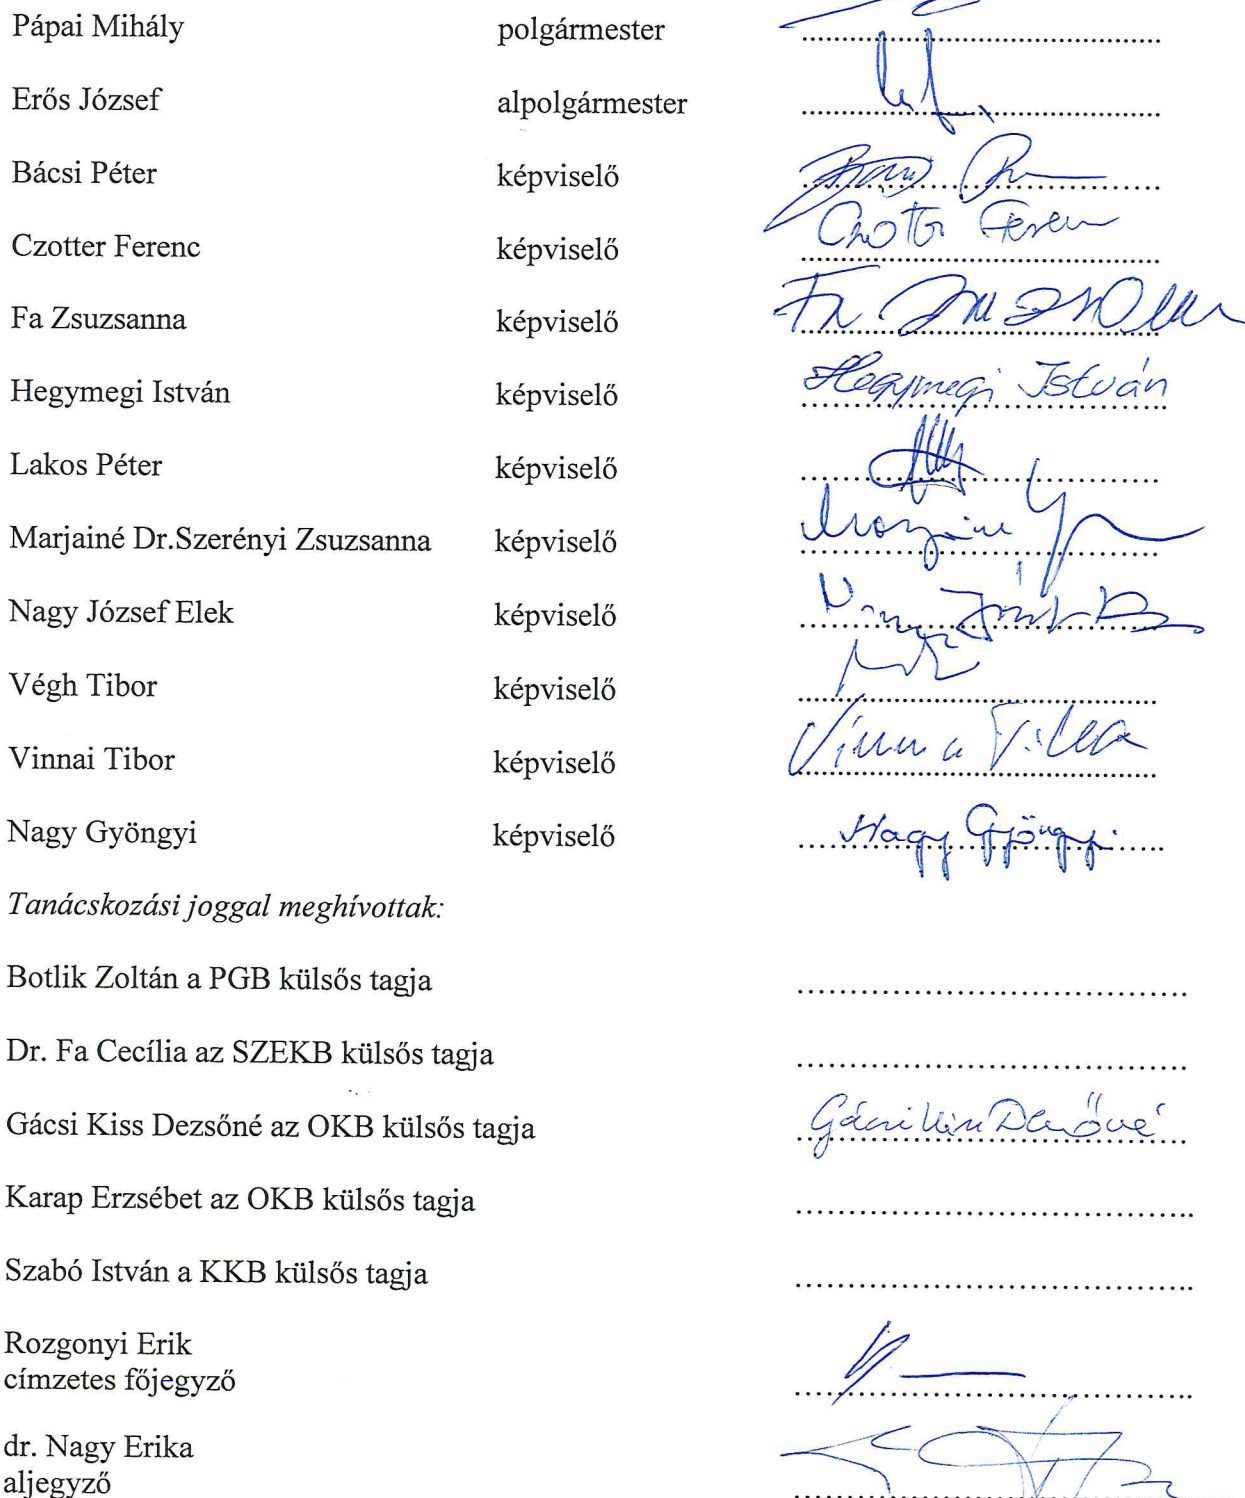 Pápai Mihály polgármester ........................................
Erős József alpolgármester ........................................
Bácsi Péter képviselő ........................................
Czotter Ferenc képviselő ........................................ Czotter Ferenc
Fa Zsuzsanna képviselő ........................................ Fa Zsuzsanna
Hegymegi István képviselő ........................................ Hegymegi István
Lakos Péter képviselő ........................................
Marjainé Dr.Szerényi Zsuzsanna képviselő ........................................
Nagy József Elek képviselő ........................................
Végh Tibor képviselő ........................................
Vinnai Tibor képviselő ........................................
Nagy Gyöngyi képviselő ........................................ Nagy Gyöngyi
Tanácskozási joggal meghívottak:
Botlik Zoltán a PGB külsős tagja ........................................
Dr. Fa Cecília az SZEKB külsős tagja ........................................
Gácsi Kiss Dezsőné az OKB külsős tagja ........................................ Gácsi Kiss Dezsőné
Karap Erzsébet az OKB külsős tagja ........................................
Szabó István a KKB külsős tagja ........................................
Rozgonyi Erik
címzetes főjegyző ........................................
dr. Nagy Erika
aljegyző ........................................